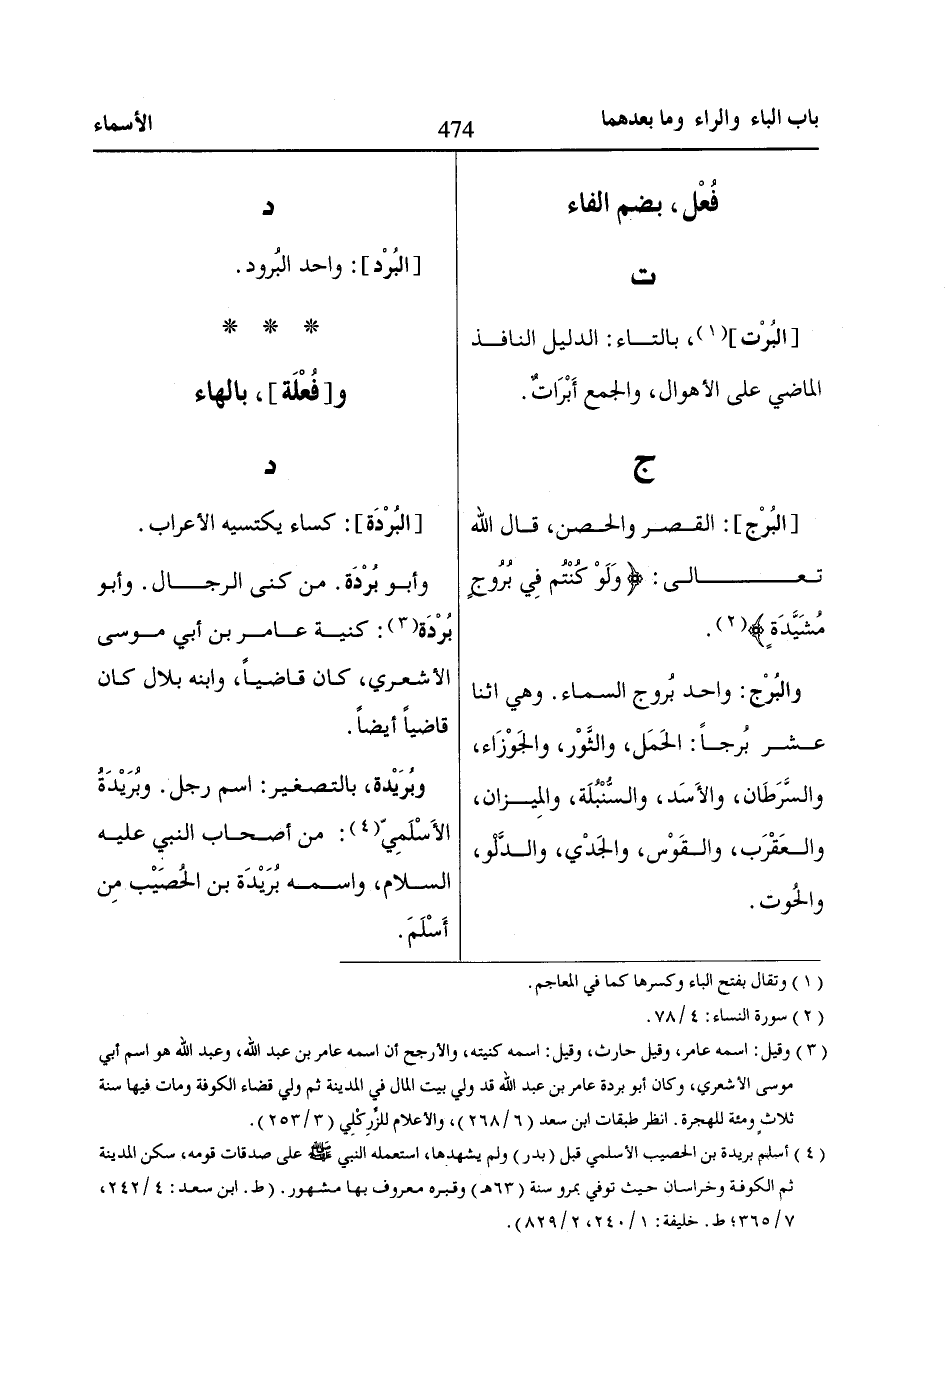 باب الباء والراء وما بعدهما
474
الأسماء
فُعْل، بضم الفاء
ت
[البُرْت](١)، بالتاء: الدليل النافذ
الماضي على الأهوال، والجمع أَبْرَاتٌ.
ج
[البُرْج]: القصر والحصن، قال الله
تعالى: ﴿وَلَوْ كُنْتُم فِي بُرُوجٍ
مُشَيَّدَةٍ﴾(٢).
والبُرْج: واحد بُروج السماء. وهي اثنا
عشر بُرجاً: الحَمَل، والثَّوْر، والجَوْزَاء،
والسَّرَطَان، والأسَد، والسُّنْبُلَة، والمِيزان،
والعَقْرَب، والقَوْس، والجَدْي، والدَّلْو،
والحُوت.
د
[البُرْد]: واحد البُرود.
* * *
و[فُعْلَة]، بالهاء
د
[البُرْدَة]: كساء يكتسيه الأعراب.
وأبو بُرْدَة. من كنى الرجال. وأبو
بُرْدَة(٣): كنية عامر بن أبي موسى
الأشعري، كان قاضياً، وابنه بلال كان
قاضياً أيضاً.
وبُرَيْدة، بالتصغير: اسم رجل. وبُرَيْدَةُ
الأَسْلَمِيّ(٤): من أصحاب النبي عليه
السلام، واسمه بُرَيْدَة بن الحُصَيْب مِن
أَسْلَمَ.
(١) وتقال بفتح الباء وكسرها كما في المعاجم.
(٢) سورة النساء: ٤/٧٨.
(٣) وقيل: اسمه عامر، وقيل حارث، وقيل: اسمه كنيته، والأرجح أن اسمه عامر بن عبد الله، وعبد الله هو اسم أبي
موسى الأشعري، وكان أبو بردة عامر بن عبد الله قد ولي بيت المال في المدينة ثم ولي قضاء الكوفة ومات فيها سنة
ثلاثٍ ومئة للهجرة. انظر طبقات ابن سعد (٦/٢٦٨)، والأعلام للزِّرِكْلِي (٣/٢٥٣).
(٤) أسلم بريدة بن الحصيب الأسلمي قبل (بدر) ولم يشهدها، استعمله النبي ﷺ على صدقات قومه، سكن المدينة
ثم الكوفة وخراسان حيث توفي بمرو سنة (٦٣هـ) وقبره معروف بها مشهور. (ط. ابن سعد: ٤/٢٤٢،
٧/٣٦٥؛ ط. خليفة: ١/٢٤٠، ٢/٨٢٩).